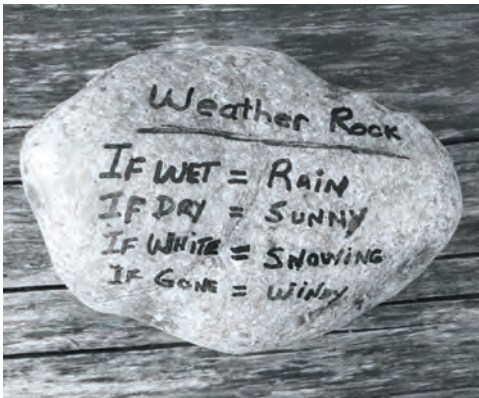 Weather Rock
IF WET = RAiN
IF DRY = SUNNY
IF WHiTE = SNOWiNG
IF GONE = WiNDY